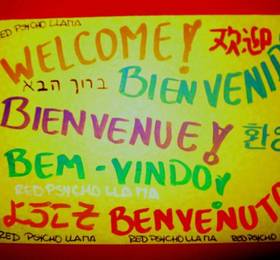 RED PSYCHO LLAMA
WELCOME! 欢迎
ברוך הבא BIENVENI
BIENVENUE! 환영
BEM-VINDO!
RED PSYCHO LLAMA
BENVENUT
RED PSYCHO LLAMA RED PSYCHO LLAMA RED PSYC